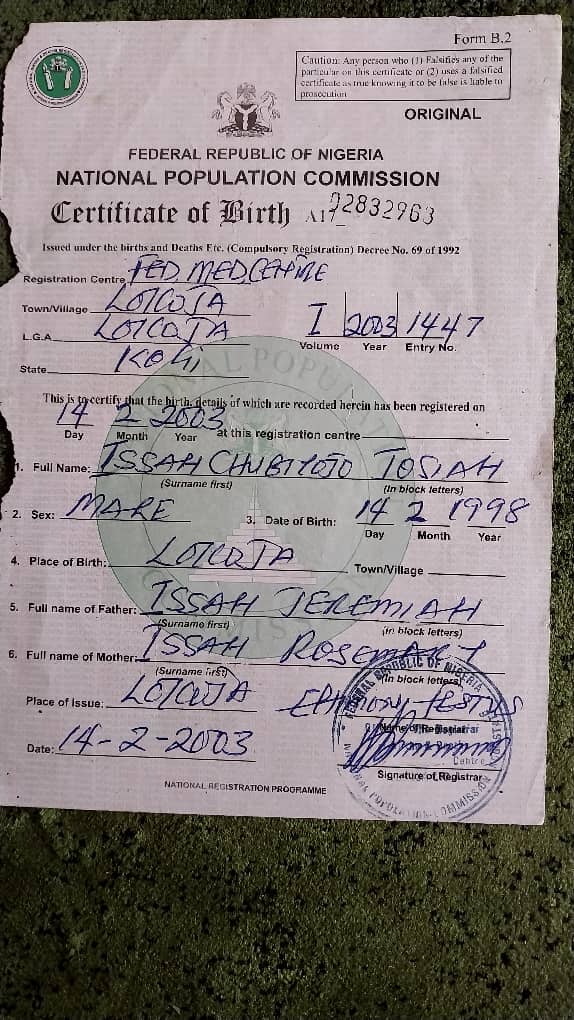 Form B.2
Caution: Any person who (1) Falsifies any of the
particular on this certificate or (2) uses a falsified
certificate as true knowing it to be false is liable to
prosecution
ORIGINAL
FEDERAL REPUBLIC OF NIGERIA
NATIONAL POPULATION COMMISSION
Certificate of Birth A17 02832963
Issued under the births and Deaths Etc. (Compulsory Registration) Decree No. 69 of 1992
Registration Centre FED. MED. CENTRE
Town/Village LOKOJA
L.G.A. LOKOJA I 2003 1447
Volume Year Entry No.
State KOGI
This is to certify that the birth, details of which are recorded herein has been registered on
14 2 2003
Day Month Year at this registration centre
1. Full Name: ISSAH JOSIAH
(Surname first) (In block letters)
2. Sex: MALE 3. Date of Birth: 14 2 1998
Day Month Year
4. Place of Birth: LOKOJA Town/Village
5. Full name of Father: ISSAH JEREMIAH
(Surname first) (in block letters)
6. Full name of Mother: ISSAH ROSEMARY
(Surname first) (In block letters)
Place of Issue: LOKOJA FESTUS
Name of Registrar
Date: 14-2-2003
Signature of Registrar
NATIONAL REGISTRATION PROGRAMME
FEDERAL REPUBLIC OF NIGERIA
NATIONAL POPULATION COMMISSION